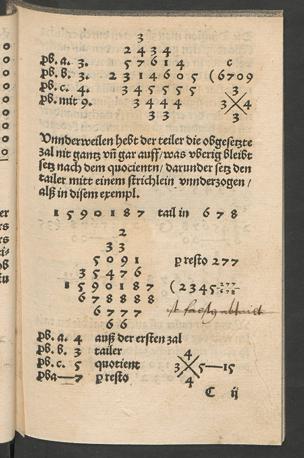 3
2 4 3 4
pb. a. 3. 5 7 6 1 4 c
pb. b. 3. 2 3 1 4 6 0 5 (6709
pb. c. 4. 3 4 5 5 5 5 3
pb. mit 9. 3 4 4 4 3 4
3 3 3
Unnderweilen hebt der teiler die obgesetzte
zal nit gantz uñ gar auff/was vberig bleibt
setz nach dem quocientn/ darunder setz den
tailer mitt einem strichlein vnnderzogen/
alß in disem exempl.
1 5 9 0 1 8 7 tail in 6 7 8
2
3 3
5 0 9 1 p resto 277
3 5 4 7 6
1 5 9 0 1 8 7 (2345 277
6 7 8 8 8 8 678
6 7 7 7
6 6
pb. a. 4 auß der ersten zal
pb. b. 3 tailer 4
pb. c. 5 quotient 3 5—15
pba—7 p resto 4
C ij